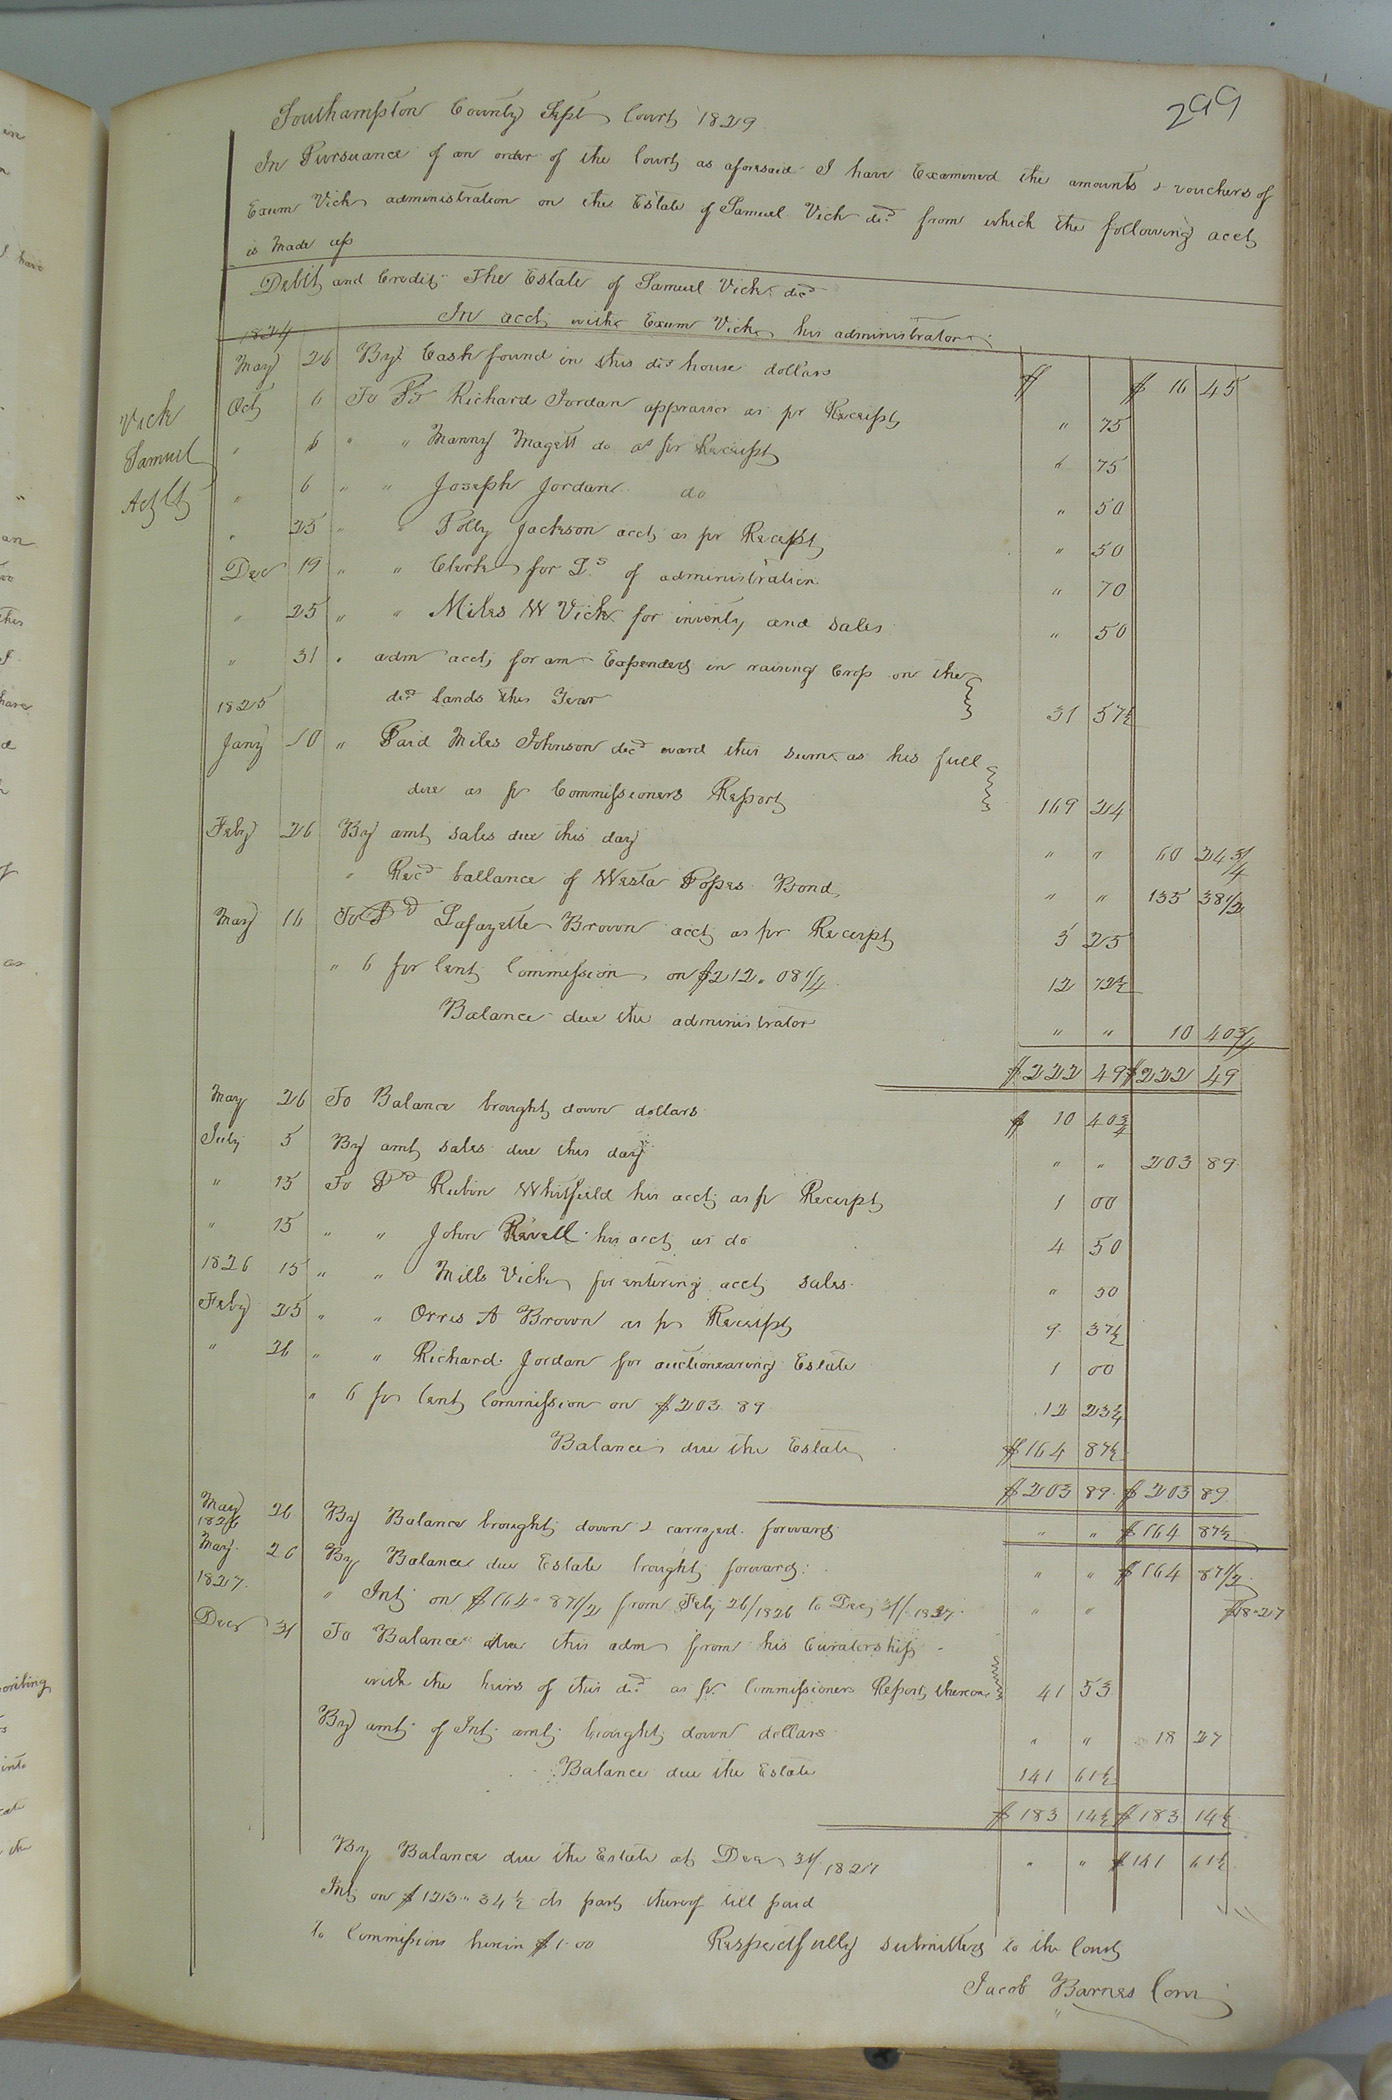 299
Southampton County Sept Court 1829
In Pursuance of an order of the Court as aforesaid I have Examined the amounts & vouchers of
Exum Vick administration on the Estate of Samuel Vick decd from which the following acct
is Made up
Debit and Credit The Estate of Samuel Vick decd
In acct with Exum Vick his administrator
1824
May 26 By Cash found in this decd house dollars $ $ 16 45
Vick
Samuel
Act Ct
Oct 6 To Pd Richard Jordan appraisor as pr Receipt " 75
" 6 " " Manny Magett do as pr Receipt " 75
" 6 " " Joseph Jordan do " 50
" 25 " " Polly Jackson acct as pr Receipt " 50
Dec 19 " " Clerk for Ls of administration " 70
" 25 " " Miles W Vick for inventy and sales " 50
" 31 " adm acct for am Expended in raising Crop on the
1825 decd lands this Year 31 57½
Jany 10 " Paid Miles Johnson decd ward this sum as his full
due as pr Commissioners Report 169 24
Feby 26 By amt sales due this day " " 60 24 3/4
" Recd ballance of Westa Popes Bond " " 135 38 1/2
May 16 To Pd Lafayette Brown acct as pr Receipt 5 25
" 6 per Cent Commission on $212.08 1/4 12 72½
Balance due the administrator " " 10 40 3/4
$ 222 49 $ 222 49
May 26 To Balance brought down dollars $ 10 40 3/4
July 5 By amt sales due this day " " 203 89
" 15 To Pd Reubin Whitfield his acct as pr Receipt 1 00
" 15 " " John Revell his acct as do 4 50
1826 15 " " Mills Vick for entering acct sales " 50
Feby 25 " " Orris A Brown as pr Receipt 9 37½
" 26 " " Richard Jordan for auctionearing Estate 1 00
" 6 pr Cent Commission on $203.89 12 23¼
Balance due the Estate $ 164 87½
$ 203 89 $ 203 89
May 26 By Balance brought down & carryed forward " " $ 164 87½
1826
May 20 By Balance due Estate brought forward " " $ 164 87 1/2
1827 " Int on $164.87 1/2 from Feby 26/1826 to Dec 31/1827 " " $18.27
Decr 31 To Balance due this adm from his Curatorship
with the heirs of this decd as pr Commissioners Report thereon 41 53
By amt of Int amt brought down dollars " " 18 27
Balance due the Estate 141 61½
$ 183 14½ $ 183 14½
By Balance due the Estate at Decr 31/1827 " " $ 141 61½
Int on $123.34½ cts part thereof till paid
To Commissions herein $1.00 Respectfully submitted to the Court
Jacob Barnes Com